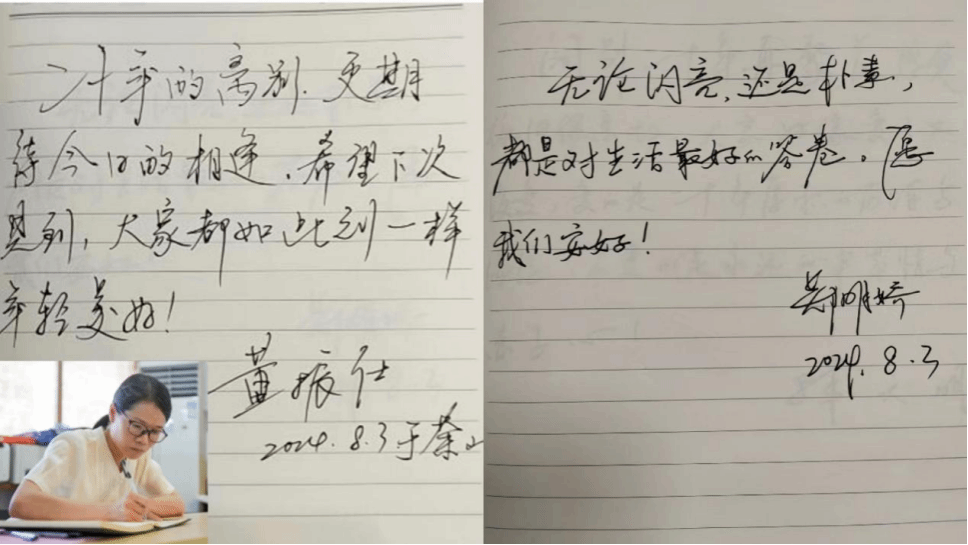 二十年的离别,更期
待今日的相逢,希望下次
见到,大家都如此刻一样
年轻美好!
黄振仕
2024.8.3于泰山
无论闪亮,还是朴素,
都是对生活最好的答卷。愿
我们安好!
郑明娇
2024.8.3